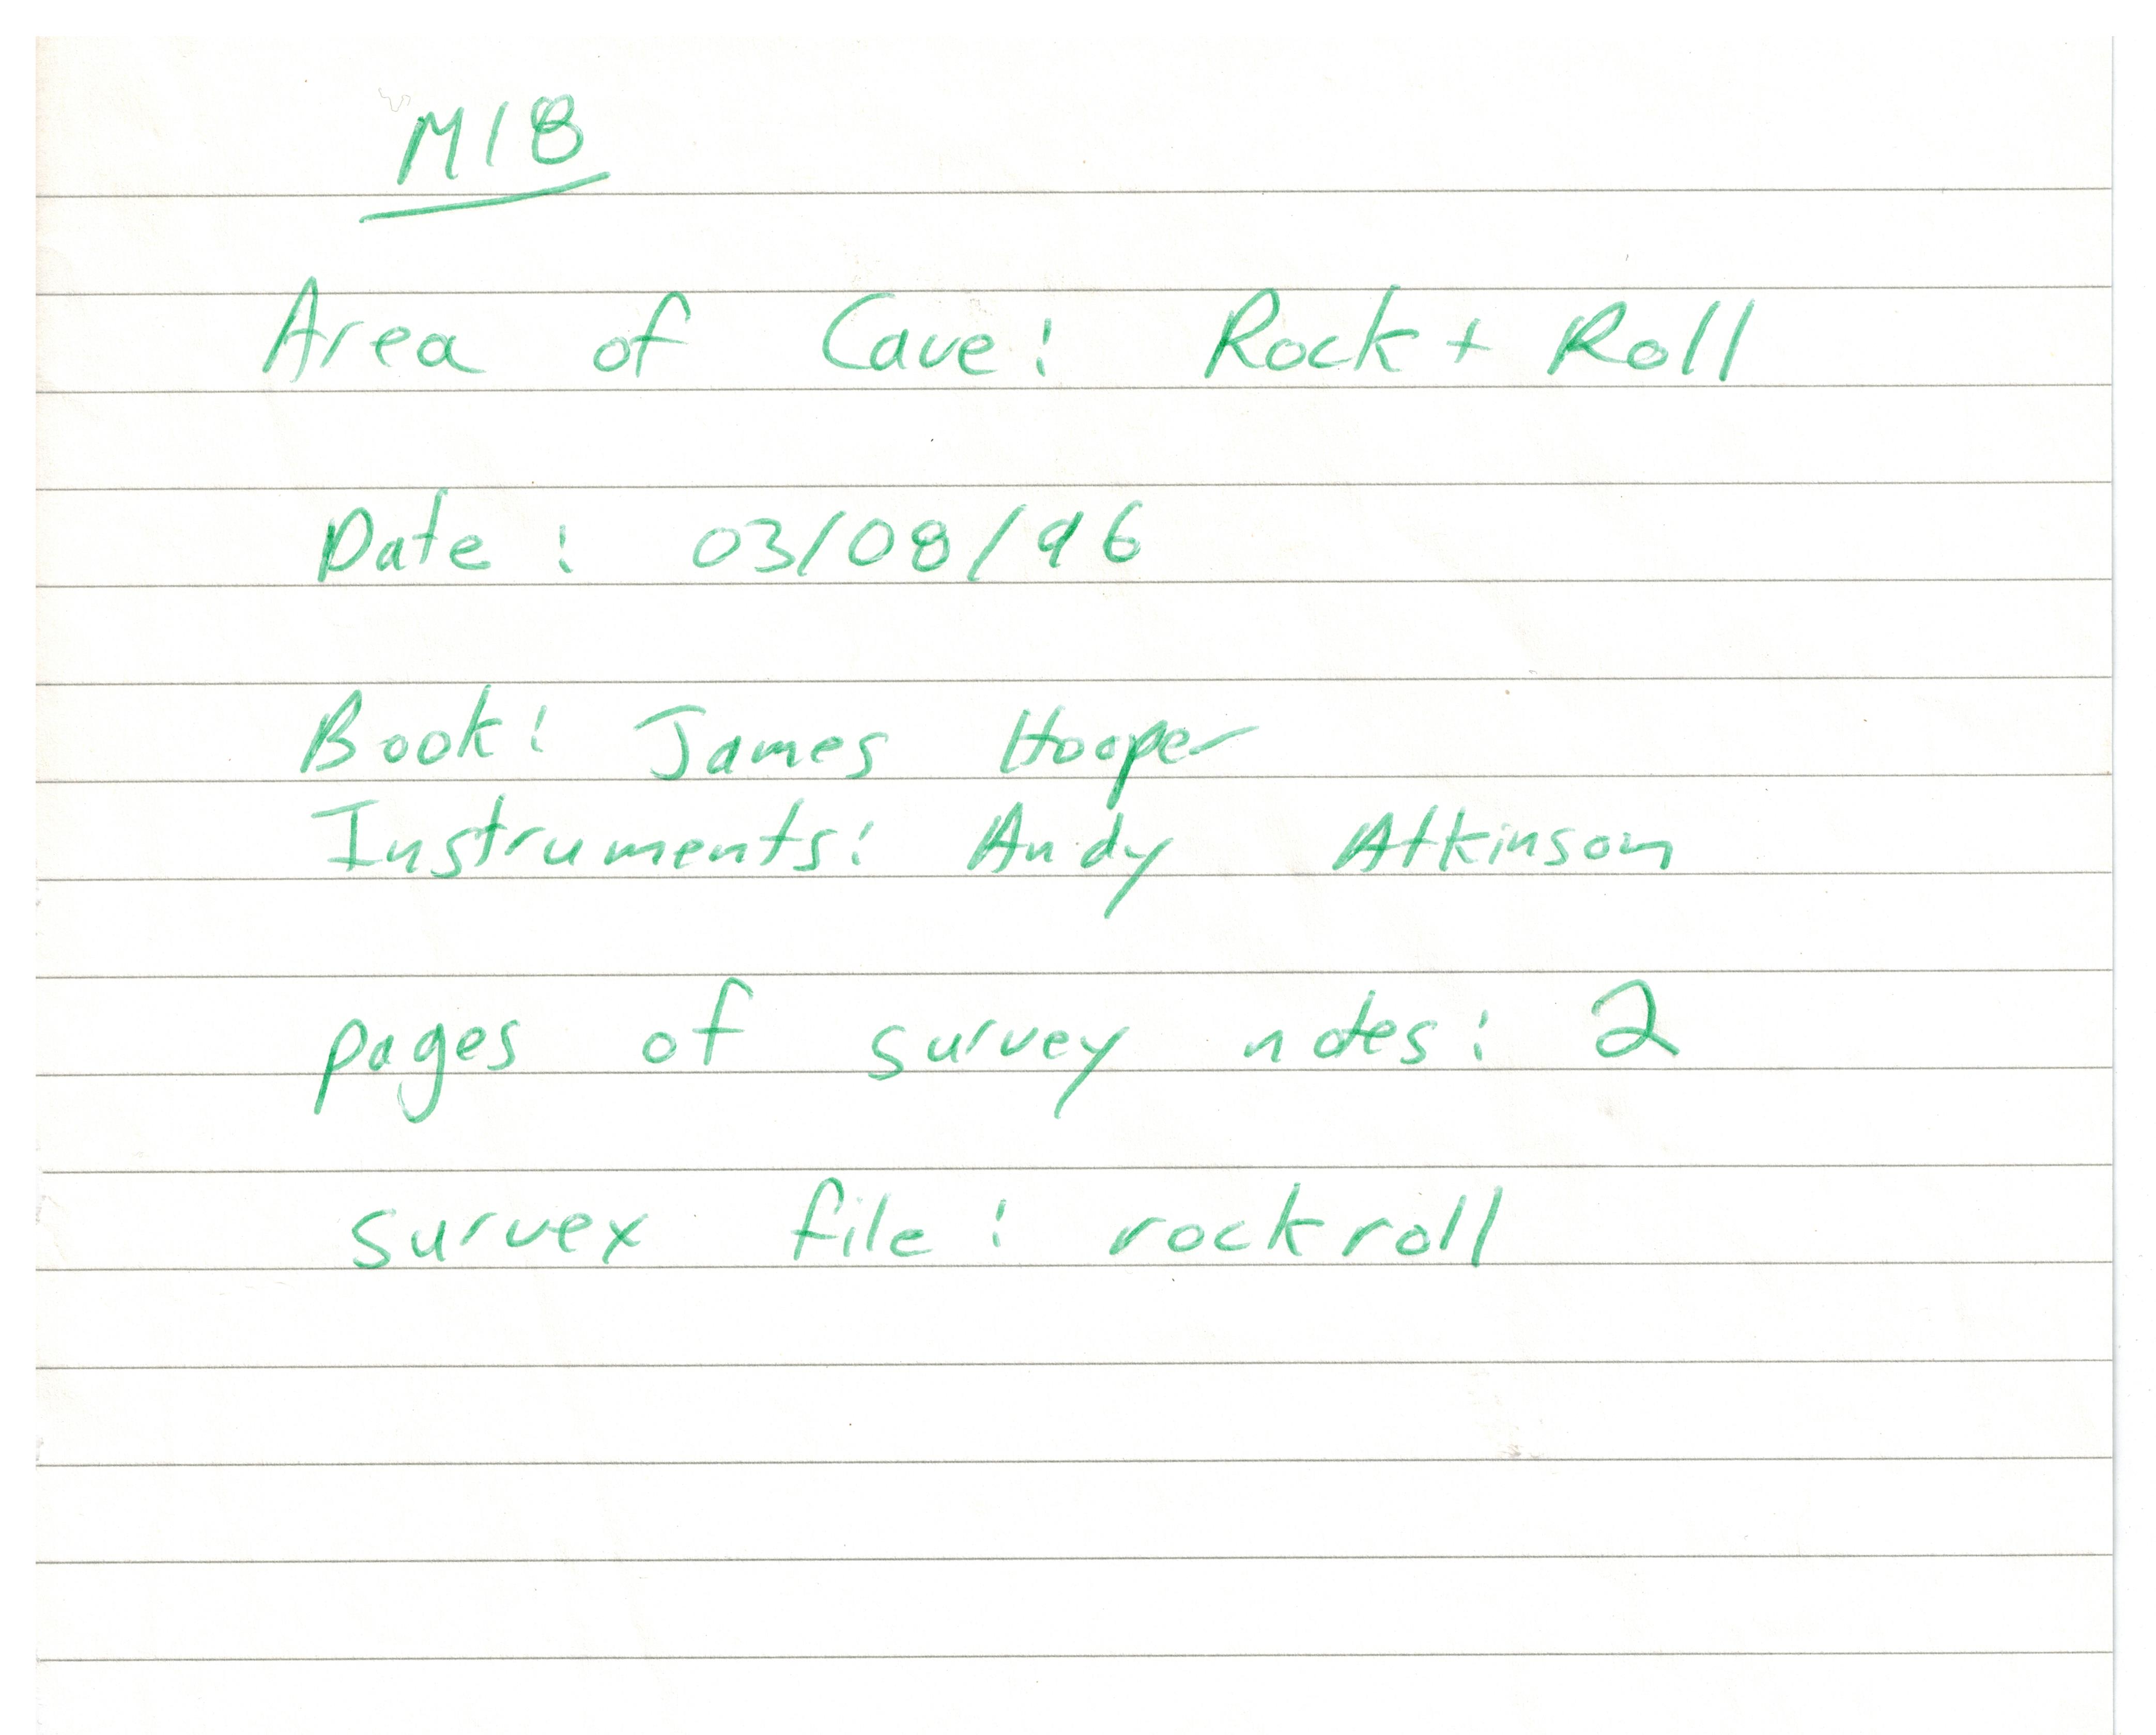 M18
Area of Cave: Rock + Roll
Date: 03/08/96
Book: James Hooper
Instruments: Andy Atkinson
pages of survey notes: 2
survex file: rockroll